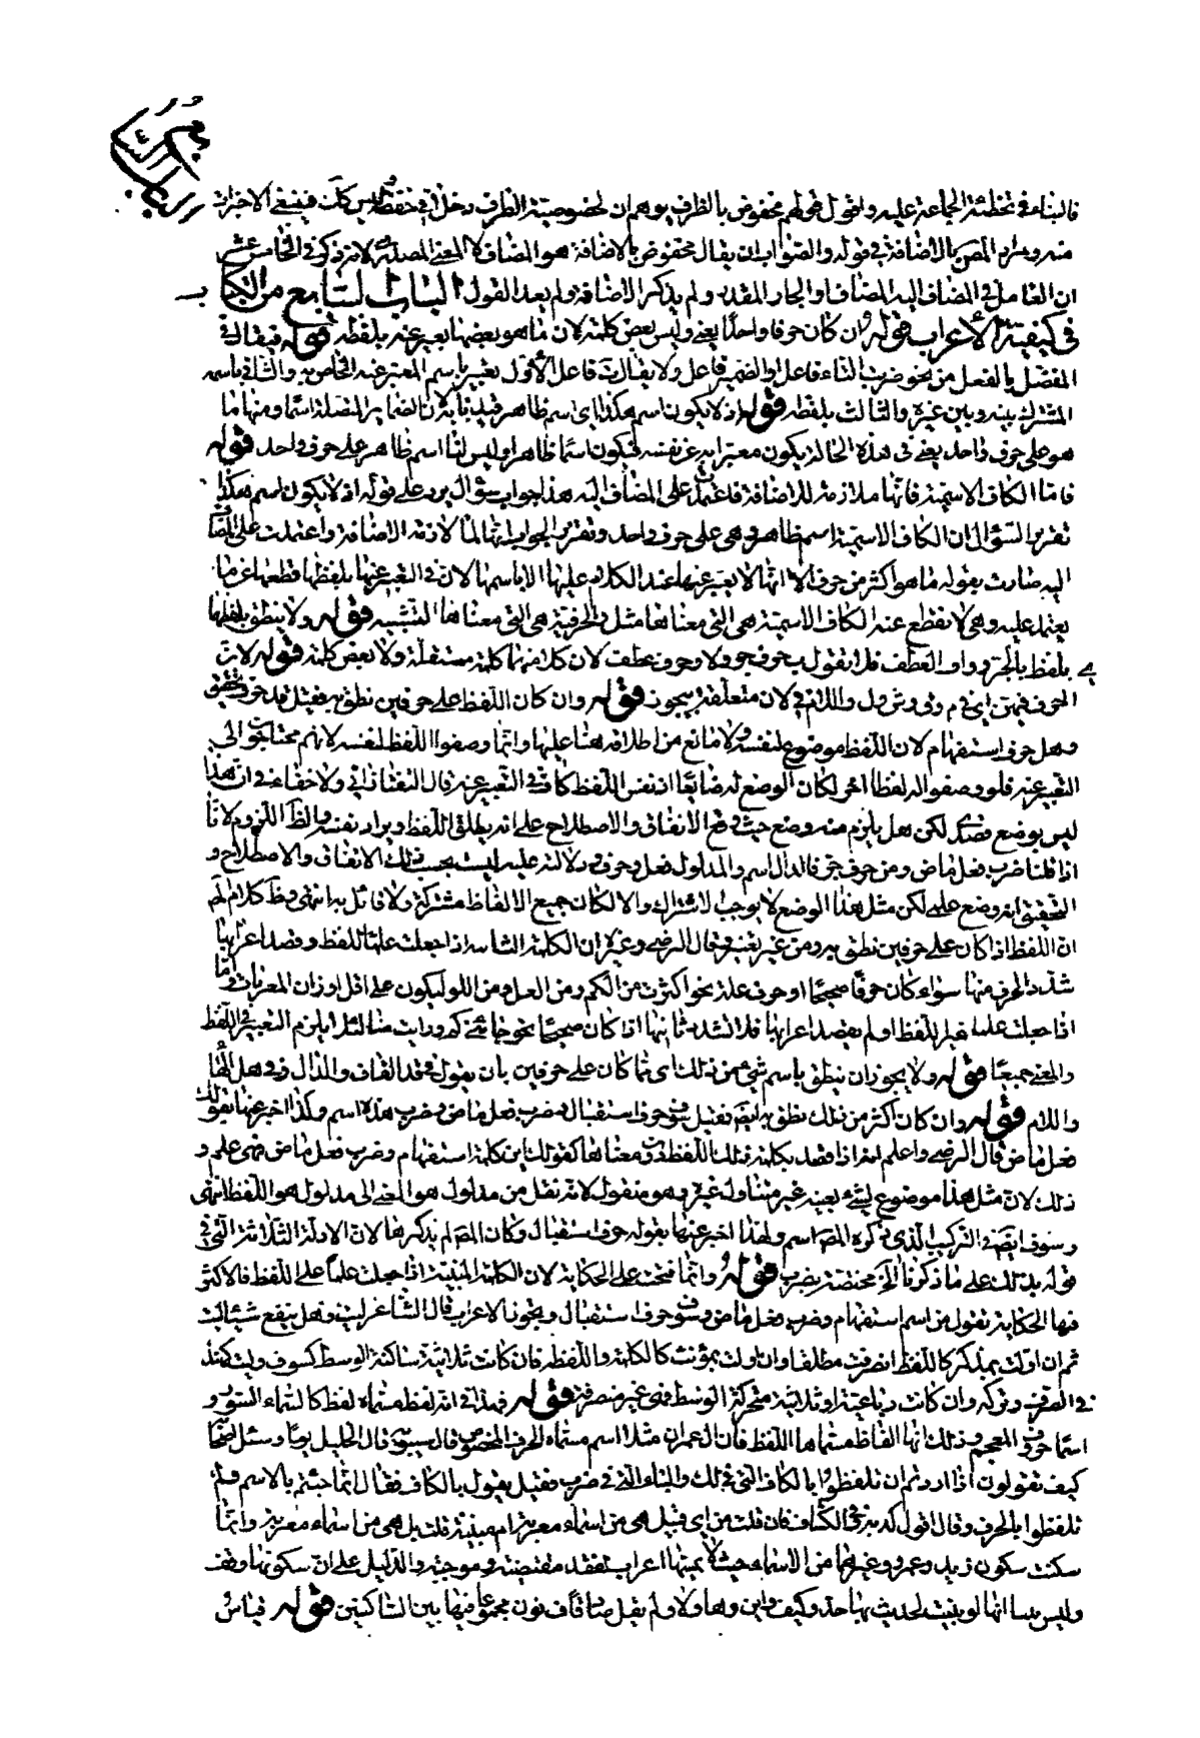 الباب السابع
فالبناء في تخطئة الجماعة عليه واقول قولهم مخفوض بالظرف يوهم ان لخصوصية الظرف دخلا في خفضه وليس كذلك فينبغي الاحتراز
منه ومراد المص بالاضافة في قوله والصواب ان يقال مخفوض بالاضافة هو المضاف لا المعنى المصدري لانه ذكر في الخامس عشر
ان العامل في المضاف اليه المضاف او الجار المقدر ولم يذكر الاضافة ولم يعد القول الباب السابع من الكتاب
في كيفية الاعراب قوله وان كان حرفا واحدا يعني وليس بعض كلمة لان ما هو بعضها يعبر عنه بلفظه قوله فيقال في
المتصل بالفعل من نحو ضربت التاء فاعل او الضمير فاعل ولا يقال ت فاعل الاول تعبير باسم المعبر عنه الخاص به والثاني باسمه
المشترك بينه وبين غيره والثالث بلفظه قوله اذ لا يكون اسم هكذا اي اسم ظاهر قيدنا به لان الضماير المتصلة اسما ومنها ما
هو على حرف واحد يعني في هذه الحالة يكون معبرا به عن نفسه فيكون اسما ظاهرا وليس لنا اسم ظاهر على حرف واحد قوله
فاما الكاف الاسمية فانها ملازمة للاضافة فاعتمدت على المضاف اليه هذا جواب سؤال يرد على قوله اذ لا يكون اسم هكذا
تقرير السؤال ان الكاف الاسمية اسم ظاهر وهي على حرف واحد وتقرير الجواب انها لما لازمت الاضافة واعتمدت على المضاف
اليه صارت بقوله ما هو اكثر من حرف الا انها لا يعبر عنها عند الكلام عليها الا باسمها لان في التعبير عنها بلفظها قطعها عن ما
يعتمد عليه وهي لا تقطع عنه الكاف الاسمية هي التي معناها مثل والحرفية هي التي معناها التشبيه قوله ولا ينطق بلفظها
بلفظ باء الجر وواو العطف فلا تقول ب حرف جر ولا و حرف عطف لان كلا منهما كلمة مستقلة ولا بعض كلمة قوله لانت
الحرف فيهن اي في م وق وش ول واللام في لان متعلقة بيجوز قوله وان كان اللفظ على حرفين نطق به فقيل قد حرف تحقيق
وهل حرف استفهام لان اللفظ موضوع لنفسه ولا مانع من اطلاقه هنا عليها وانما وصفوا اللفظ لنفسه لانهم محتاجون الى
التعبير عنه فلو وضعوا له لفظا اخر لكان الوضع له ضايعا اذ نفس اللفظ كاف في التعبير عنه قال التفتازاني ولا خفاء في ان هذا
ليس بوضع قصدي لكن هل يلزم منه وضع حيث وقع الاتفاق والاصطلاح على انه يطلق اللفظ ويراد نفسه والظ اللزوم لانا
اذا قلنا ضرب فعل ماض ومن حرف جر فالدال اسم والمدلول فعل وحرف ودلالته عليه ليست بحسب ذلك الاتفاق والاصطلاح و
التحقيق انه وضع علمي لكن مثل هذا الوضع لا يوجب الاشتراك والا لكان جميع الالفاظ مشتركة ولا قائل به انتهى وظ كلام المص
ان اللفظ اذا كان على حرفين نطق به ومن غير تغيير وقال الرضي وغيره ان الكلمة الثنائية اذا جعلت علما للفظ وقصد اعرابها
شدد الحرف منها سواء كان حرفا صحيحا او حرف علة نحو اكثرت من الكم ومن الهل ومن اللو ليكون على اقل اوزان المعربات واما
اذا جعلت علما لغير اللفظ او لم يقصد اعرابها فلا تشدد ثانيها اذا كان صحيحا نحو جاءني كم ورايت منا لئلا يلزم التغيير في اللفظ
والمعنى جميعا قوله ولا يجوز ان ينطق باسم شيء من ذلك اي مما كان على حرفين بان يقول في قد القاف والدال وفي هل الهاء
واللام قوله وان كان اكثر من ذلك نطق به ايضا فقيل سوف حرف استقبال وضرب فعل ماض وضرب هذه اسم ولهذا اخبر عنها بقولك
فعل ماض قال الرضي واعلم انه اذا قصد بكلمة تلك اللفظة دون معناها كقولك اين كلمة استفهام وضرب فعل ماض فهي علم و
ذلك لان مثل هذا موضوع لشيء بعينه غير متناول غيره وهو منقول لانه نقل من مدلول هو المعنى الى مدلول هو اللفظ انتهى
وسوف ايضا في التركيب الذي ذكره المص اسم ولهذا اخبر عنها بقوله حرف استقبال وكان المص لم يذكرها لان الادلة الثلاثة التي في
قوله يدلك على ما ذكرنا الخ مختصة بضرب قوله وانما فتحت على الحكاية لان الكلمة المبنية اذا جعلت علما على اللفظ فالاكثر
فيها الحكاية تقول من اسم استفهام وضرب فعل ماض وسوف حرف استقبال ويجوز الاعراب قال الشاعر ليت وهل ينفع شيئا ليت
ثم ان اولت بمذكر كاللفظ انصرفت مطلقا وان اولت بمؤنث كالكلمة واللفظة فان كانت ثلاثية ساكنة الوسط كسوف وليت كهند
في الصرف وتركه وان كانت رباعية او ثلاثية متحركة الوسط فهي غير منصرفة قوله فهذا في انه لفظ مسماه لفظ كاسماء السور و
اسماء حروف المعجم وذلك انها الفاظ مسماها اللفظ فان ال عمران مثلا اسم مسماه الحرف المخصوص قال سيبويه قال الخليل يوما وسئل اصحابه
كيف تقولون اذا اردتم ان تلفظوا بالكاف التي في لك والباء التي في ضرب فقيل يقول بالكاف فقال انما جئتم بالاسم ولم
تلفظوا بالحرف وقال اقول كه به وفي الكشاف فان قلت من اي قبيل هي من اسماء معربة ام مبنية قلت بل هي من اسماء معربة وانما
سكنت سكون زيد وعمرو وغيرهما من الاسماء حيث لا يمسها اعراب لفقد مقتضيه وموجبه والدليل على ان سكونها وقف
وليس ببناء انها لو بنيت لحذي بها حذو كيف واين وهاولاء ولم يقل صاد قاف نون مجموعا فيها بين الساكنين قوله قياس